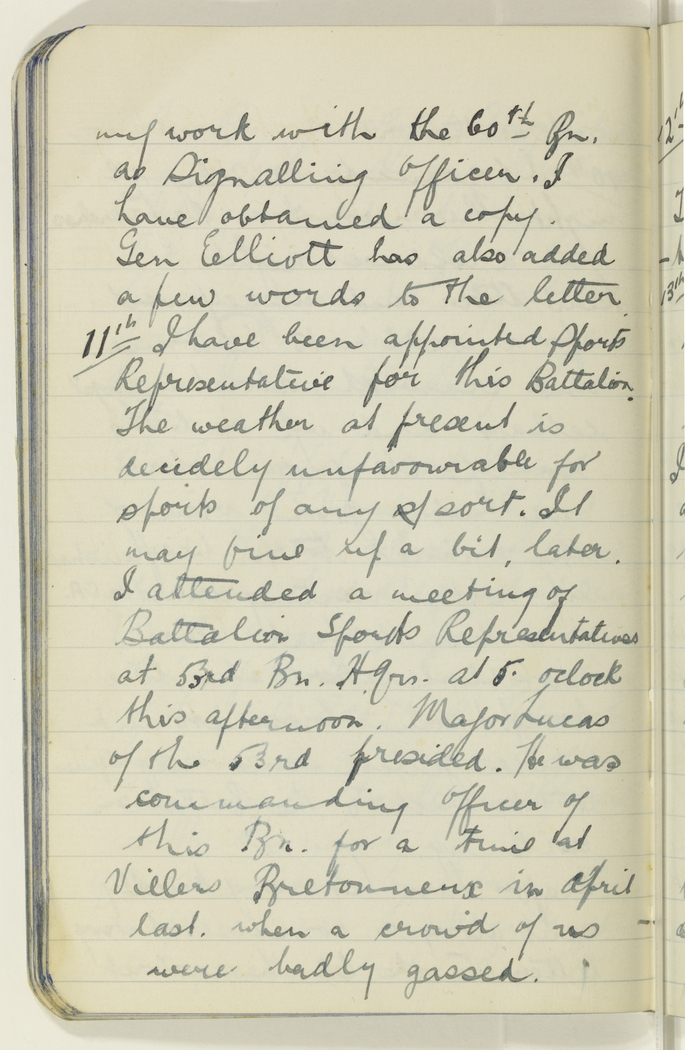 my work with the 60th Bn.
as Signalling Officer. I
have obtained a copy.
Gen Elliott has also added
a few words to the letter
11th I have been appointed Sports
Representative for this Battalion.
The weather at present is
decidely unfavourable for
sports of any sort. It
may fine up a bit, later.
I attended a meeting of
Battalion Sports Representatives
at 53rd Bn. H.Qrs. at 5. oclock
this afternoon. Major Lucas
of the 53rd presided. He was
commanding officer of
this Bn. for a time at
Villers Bretonneux in April
last. when a crowd of us
were badly gassed.
12th
13th